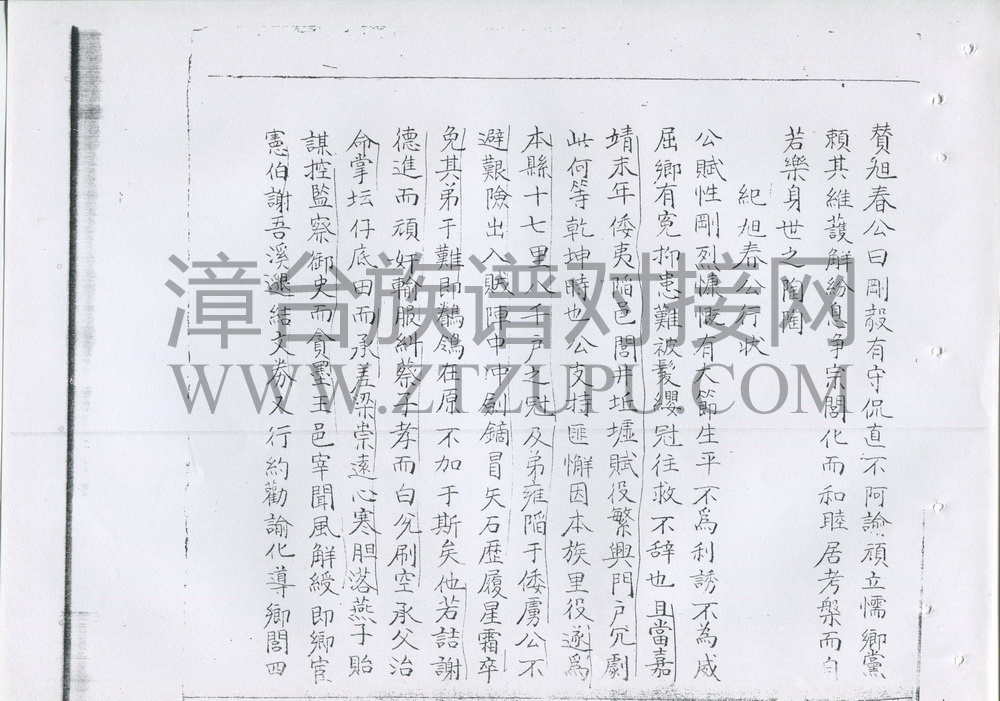 賛旭春公曰剛毅有守侃直不阿諭頑立懦鄉黨
賴其維護解紛息争宗閭化而和睦居考槃而自
若樂身世之陶陶
紀旭春公行状
公賦性剛烈慷慨有大節生平不爲利誘不為威
屈鄉有寃抑患難被髮纓冠往救不辞也且當嘉
靖末年倭夷陷邑閭井坵墟賦役繁興門户冗劇
此何等乾坤時也公支持匪懈因本族里役遂爲
本縣十七里八千户之冠及弟雍陷于倭虜公不
避艱險出入賊陣中冲劍鏑冒矢石歴履星霜卒
免其弟于難即鶺鴒在原不加于斯矣他若詰謝
德進而頑奸輸服糾蔡子孝而白兊刷空承父治
命掌坛仔底田而承差梁崇遠心寒胆落燕子貽
謀控監察御史而貪墨王邑宰聞風解綬即鄉宦
憲伯謝吾溪遜結文券又行約勸諭化導鄉閭四
漳台族谱对接网
WWW.ZTZUPU.COM